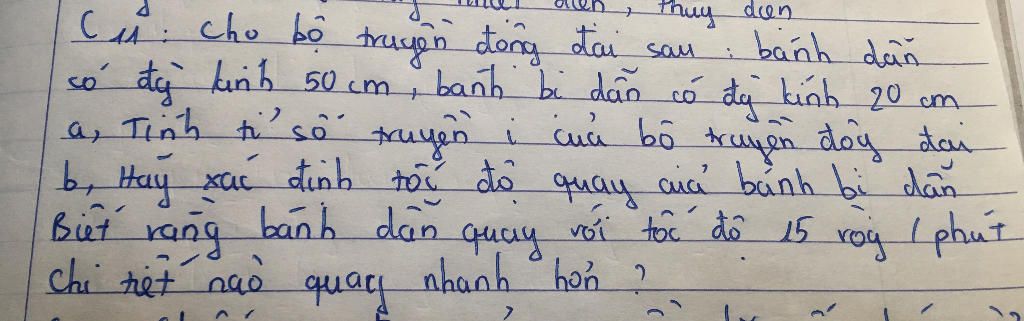 điện, thủy điện
C11: Cho bộ truyền động đai sau: bánh dẫn
có đg kính 50 cm, bánh bị dẫn có đg kính 20 cm
a, Tính tỉ số truyền i của bộ truyền độg đai
b, Hãy xác định tốc độ quay của bánh bị dẫn
Biết rằng bánh dẫn quay với tốc độ 15 vòg / phút
Chi tiết nào quay nhanh hơn ?